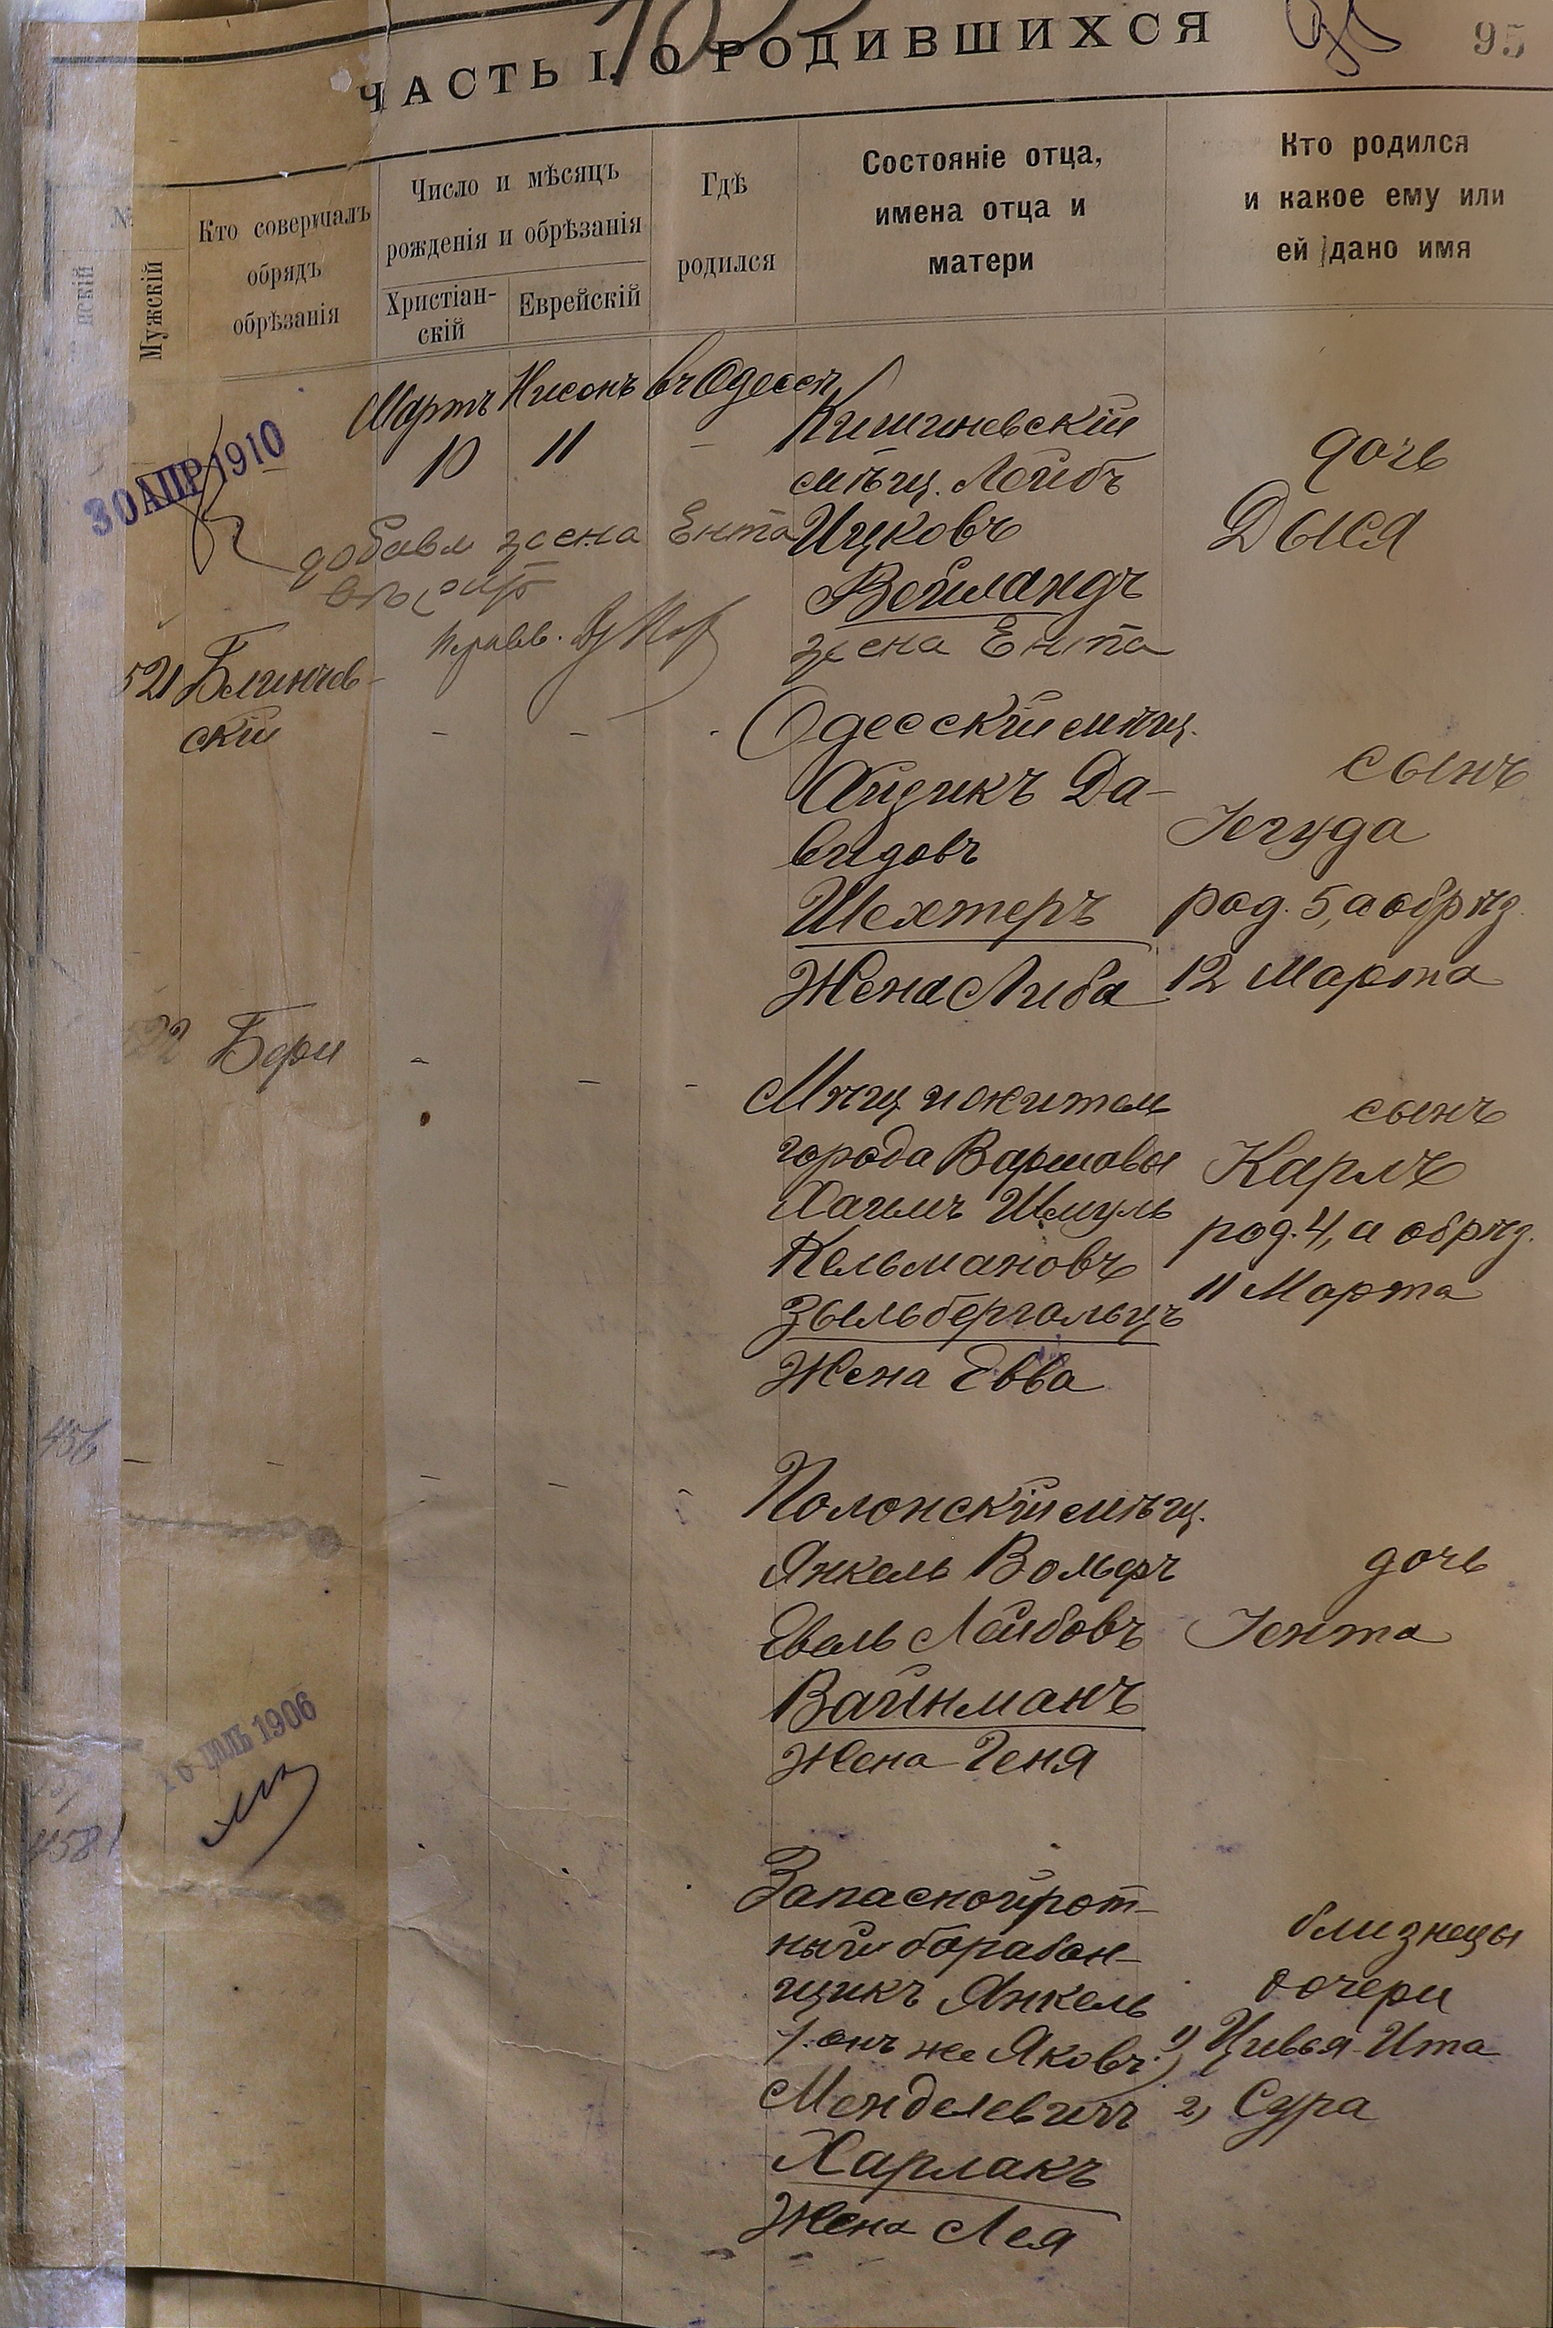 ЧАСТЬ I. О РОДИВШИХСЯ
95
№
нскій
Мужскій
Кто совершалъ
обрядъ
обрѣзанія
Число и мѣсяцъ
рожденія и обрѣзанія
Христіан-
скій
Еврейскій
Гдѣ
родился
Состояніе отца,
имена отца и
матери
Кто родился
и какое ему или
ей дано имя
Мартъ Нисонъ въ Одессѣ
10 11 -
30 АПР 1910
Кишиневскій
мѣщ. Лейбъ
Ицковъ
Вейландъ
жена Ента
дочь
Дыся
добавл жена Ента
521 Блинчев-
скій
Одесскій мѣщ.
Айзикъ Да-
видовъ
Шехтеръ
Жена Либа
сынъ
Іегуда
род. 5, а обрѣз.
12 Марта
522 Бери
Мѣщ и жител
города Варшавы
Хаимъ Шмуль
Кельмановъ
Зыльбергольцъ
Жена Евва
сынъ
Карлъ
род. 4, а обрѣз.
11 Марта
456
Полонскій мѣщ.
Янкель Вольфъ
Евель Лейбовъ
Вайнманъ
Жена Геня
дочь
Іента
ІЮЛЬ 1906
4581
Запасной рот-
ный барабан-
щикъ Янкель
(онъ же Яковъ)
Менделевичъ
Харлакъ
Жена Лея
близнецы
дочери
1) Цивья-Ита
2) Сура